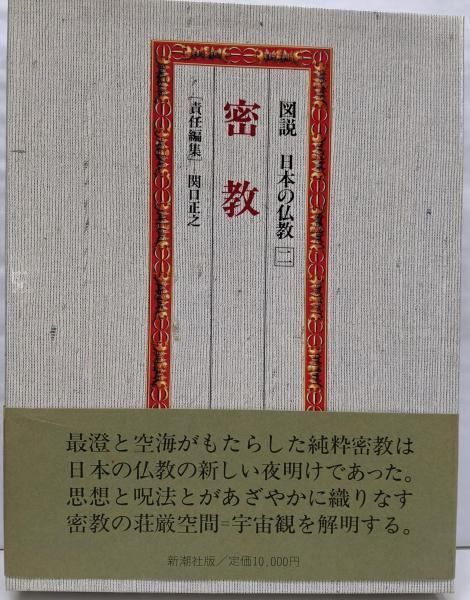 図説 日本の仏教 二
密教
[責任編集] 関口正之
最澄と空海がもたらした純粋密教は
日本の仏教の新しい夜明けであった。
思想と呪法とがあざやかに織りなす
密教の荘厳空間=宇宙観を解明する。
新潮社版/定価10,000円